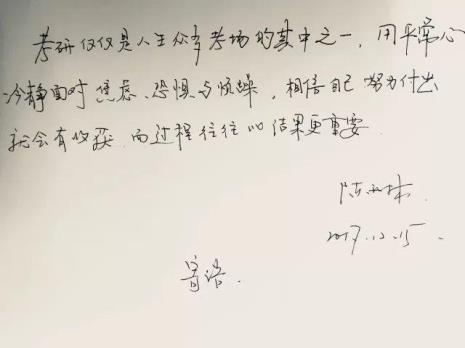 考研仅仅是人生众多考场的其中之一，用平常心
冷静面对焦虑、恐惧与烦躁，相信自己努力付出
就会有收获，而过程往往比结果更重要
陈
2017.12.15.
寄语.